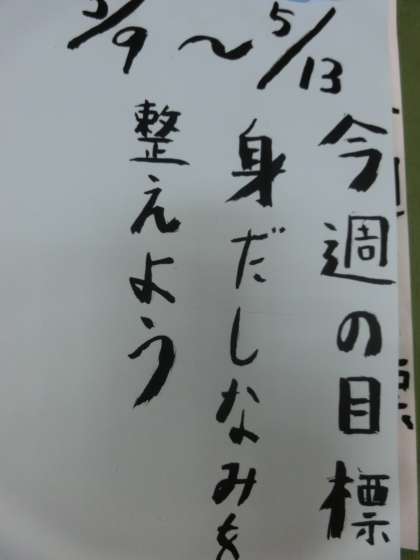 5/9〜5/13
今週の目標
身だしなみを
整えよう